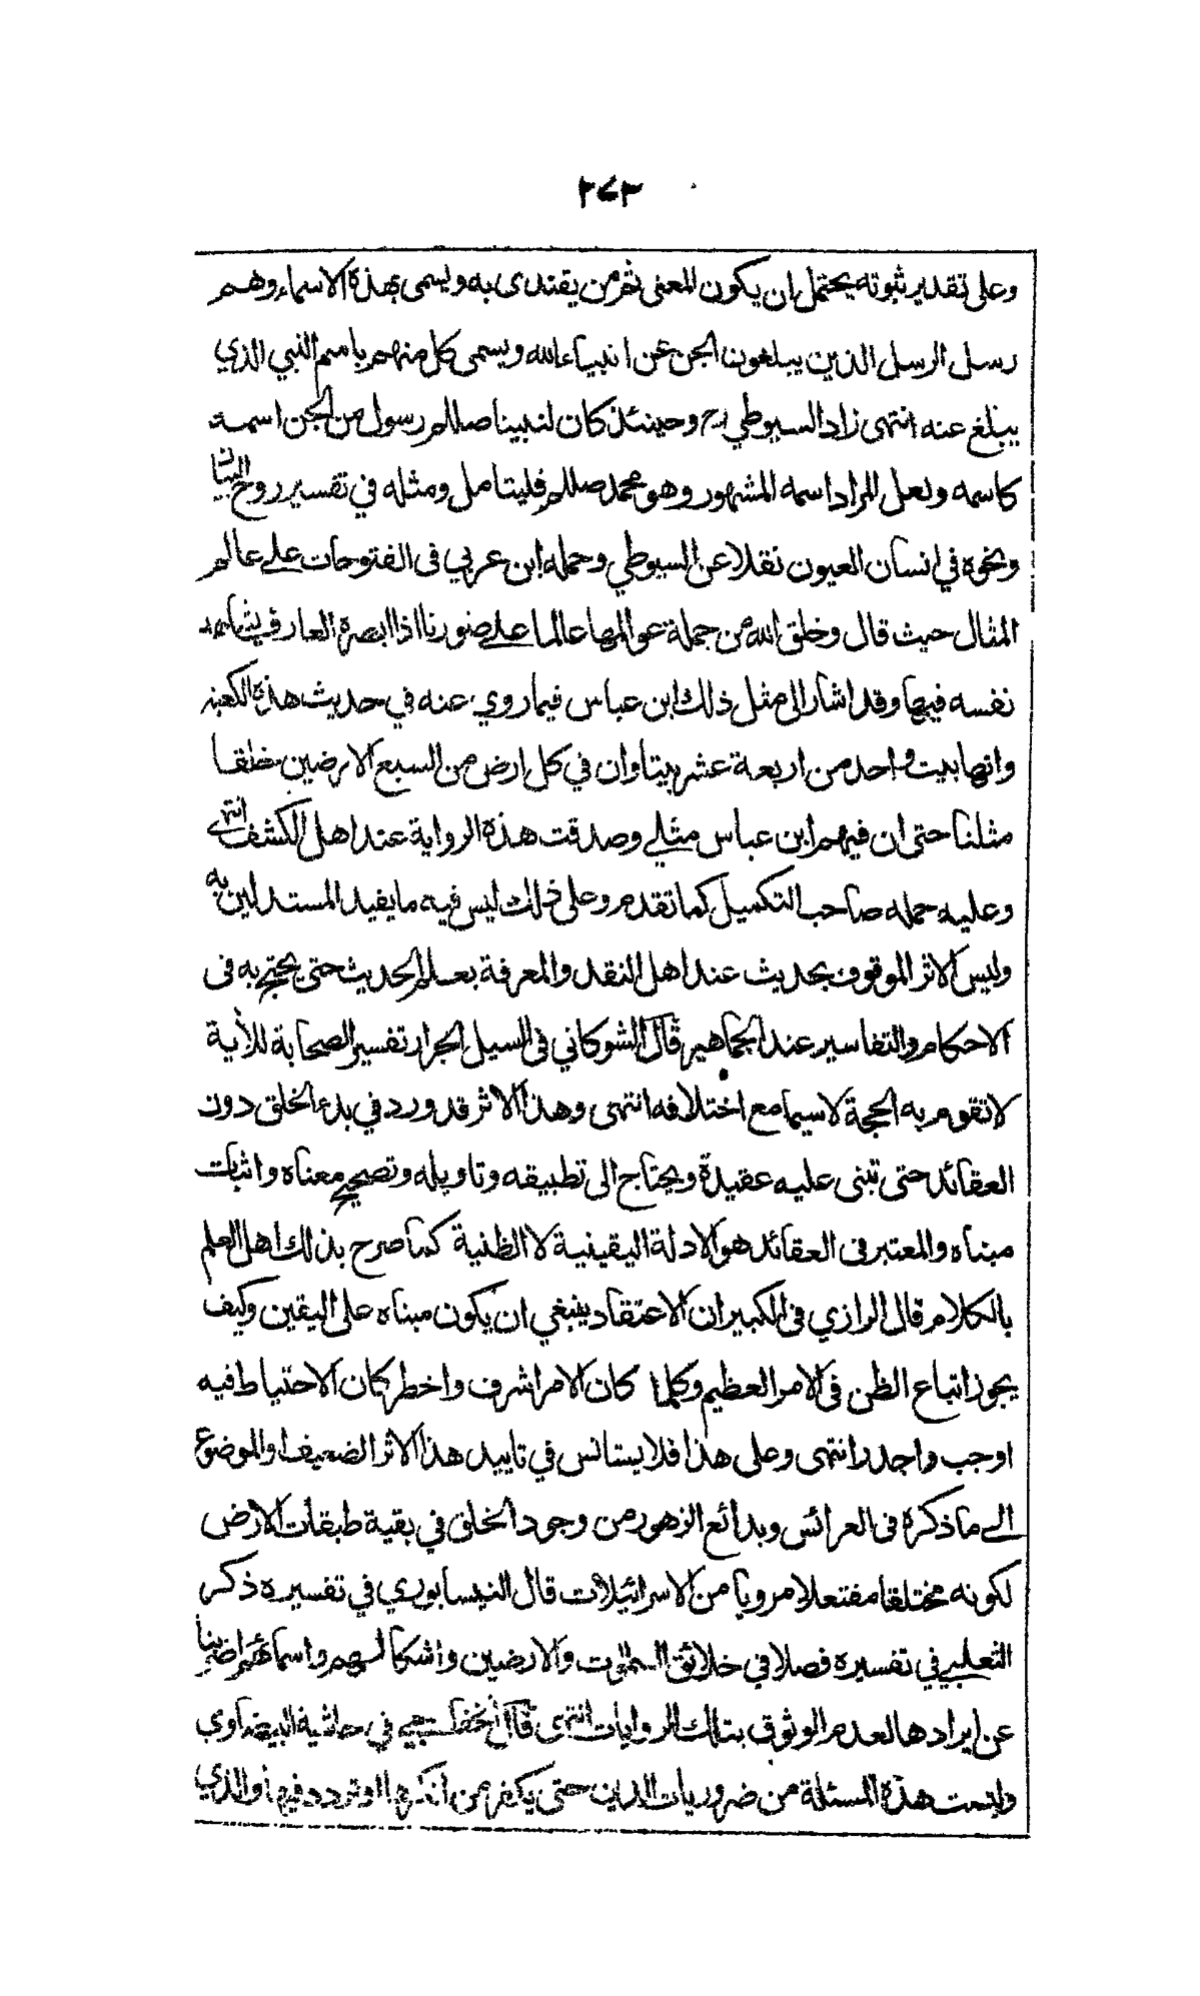 ٢٧٣
وعلى تقدير ثبوته يحتمل ان يكون المعنى ثم من يقتدى به ويسمى بهذه الاسماء وهم
رسل الرسل الذين يبلغون الجن عن انبياء الله ويسمى كل منهم باسم النبي الذي
يبلغ عنه انتهى زاد السيوطي رح وحينئذ كان لنبينا صللم رسول من الجن اسمه
كاسمه ولعل المراد اسمه المشهور وهو محمد صللم فليتامل ومثله في تفسير روح البيان
ونحوه في انسان العيون نقلا عن السيوطي وحمله ابن عربي فى الفتوحات على عالم
المثال حيث قال وخلق الله من جملة عوالمها عالما على صورنا اذا ابصره العارف يشاهد
نفسه فيها وقد اشار الى مثل ذلك ابن عباس فيما روي عنه في حديث هذه الكعبة
وانها بيت واحد من اربعة عشر بيتا وان في كل ارض من السبع الارضين خلقا
مثلنا حتى ان فيهم ابن عباس مثلي وصدقت هذه الرواية عند اهل الكشف انتهى
وعليه حمله صاحب التكميل كما تقدم وعلى ذلك ليس فيه ما يفيد المستدلين به
وليس الاثر الموقوف بحديث عند اهل النقد والمعرفة بعلم الحديث حتى يحتج به فى
الاحكام والتفاسير عند الجماهير قال الشوكاني فى السيل الجرار تفسير الصحابة للآية
لا تقوم به الحجة لاسيما مع اختلافه انتهى وهذا الاثر قد ورد في بدء الخلق دون
العقائد حتى تبنى عليه عقيدة ويحتاج الى تطبيقه وتاويله وتصحيح معناه واثبات
مبناه والمعتبر فى العقائد هو الادلة اليقينية لا الظنية كما صرح بذلك اهل العلم
بالكلام قال الرازي فى الكبير ان الاعتقاد ينبغي ان يكون مبناه على اليقين وكيف
يجوز اتباع الظن فى الامر العظيم وكلما كان الامر اشرف واخطر كان الاحتياط فيه
اوجب واجدر انتهى وعلى هذا فلا يستانس في تاييد هذا الاثر الضعيف او الموضوع
الى ما ذكره فى العرائس وبدائع الزهور من وجود الخلق في بقية طبقات الارض
لكونه مختلقا مفتعلا مرويا من الاسرائيلات قال النيسابوري في تفسيره ذكر
الثعلبي في تفسيره فصلا في خلائق السموت والارضين واشكالهم واسمائهم اضربنا
عن ايرادها لعدم الوثوق بتلك الروايات انتهى قال الخفاجي في حاشية البيضاوي
وليست هذه المسئلة من ضروريات الدين حتى يكفر من انكرها او تردد فيها والذي